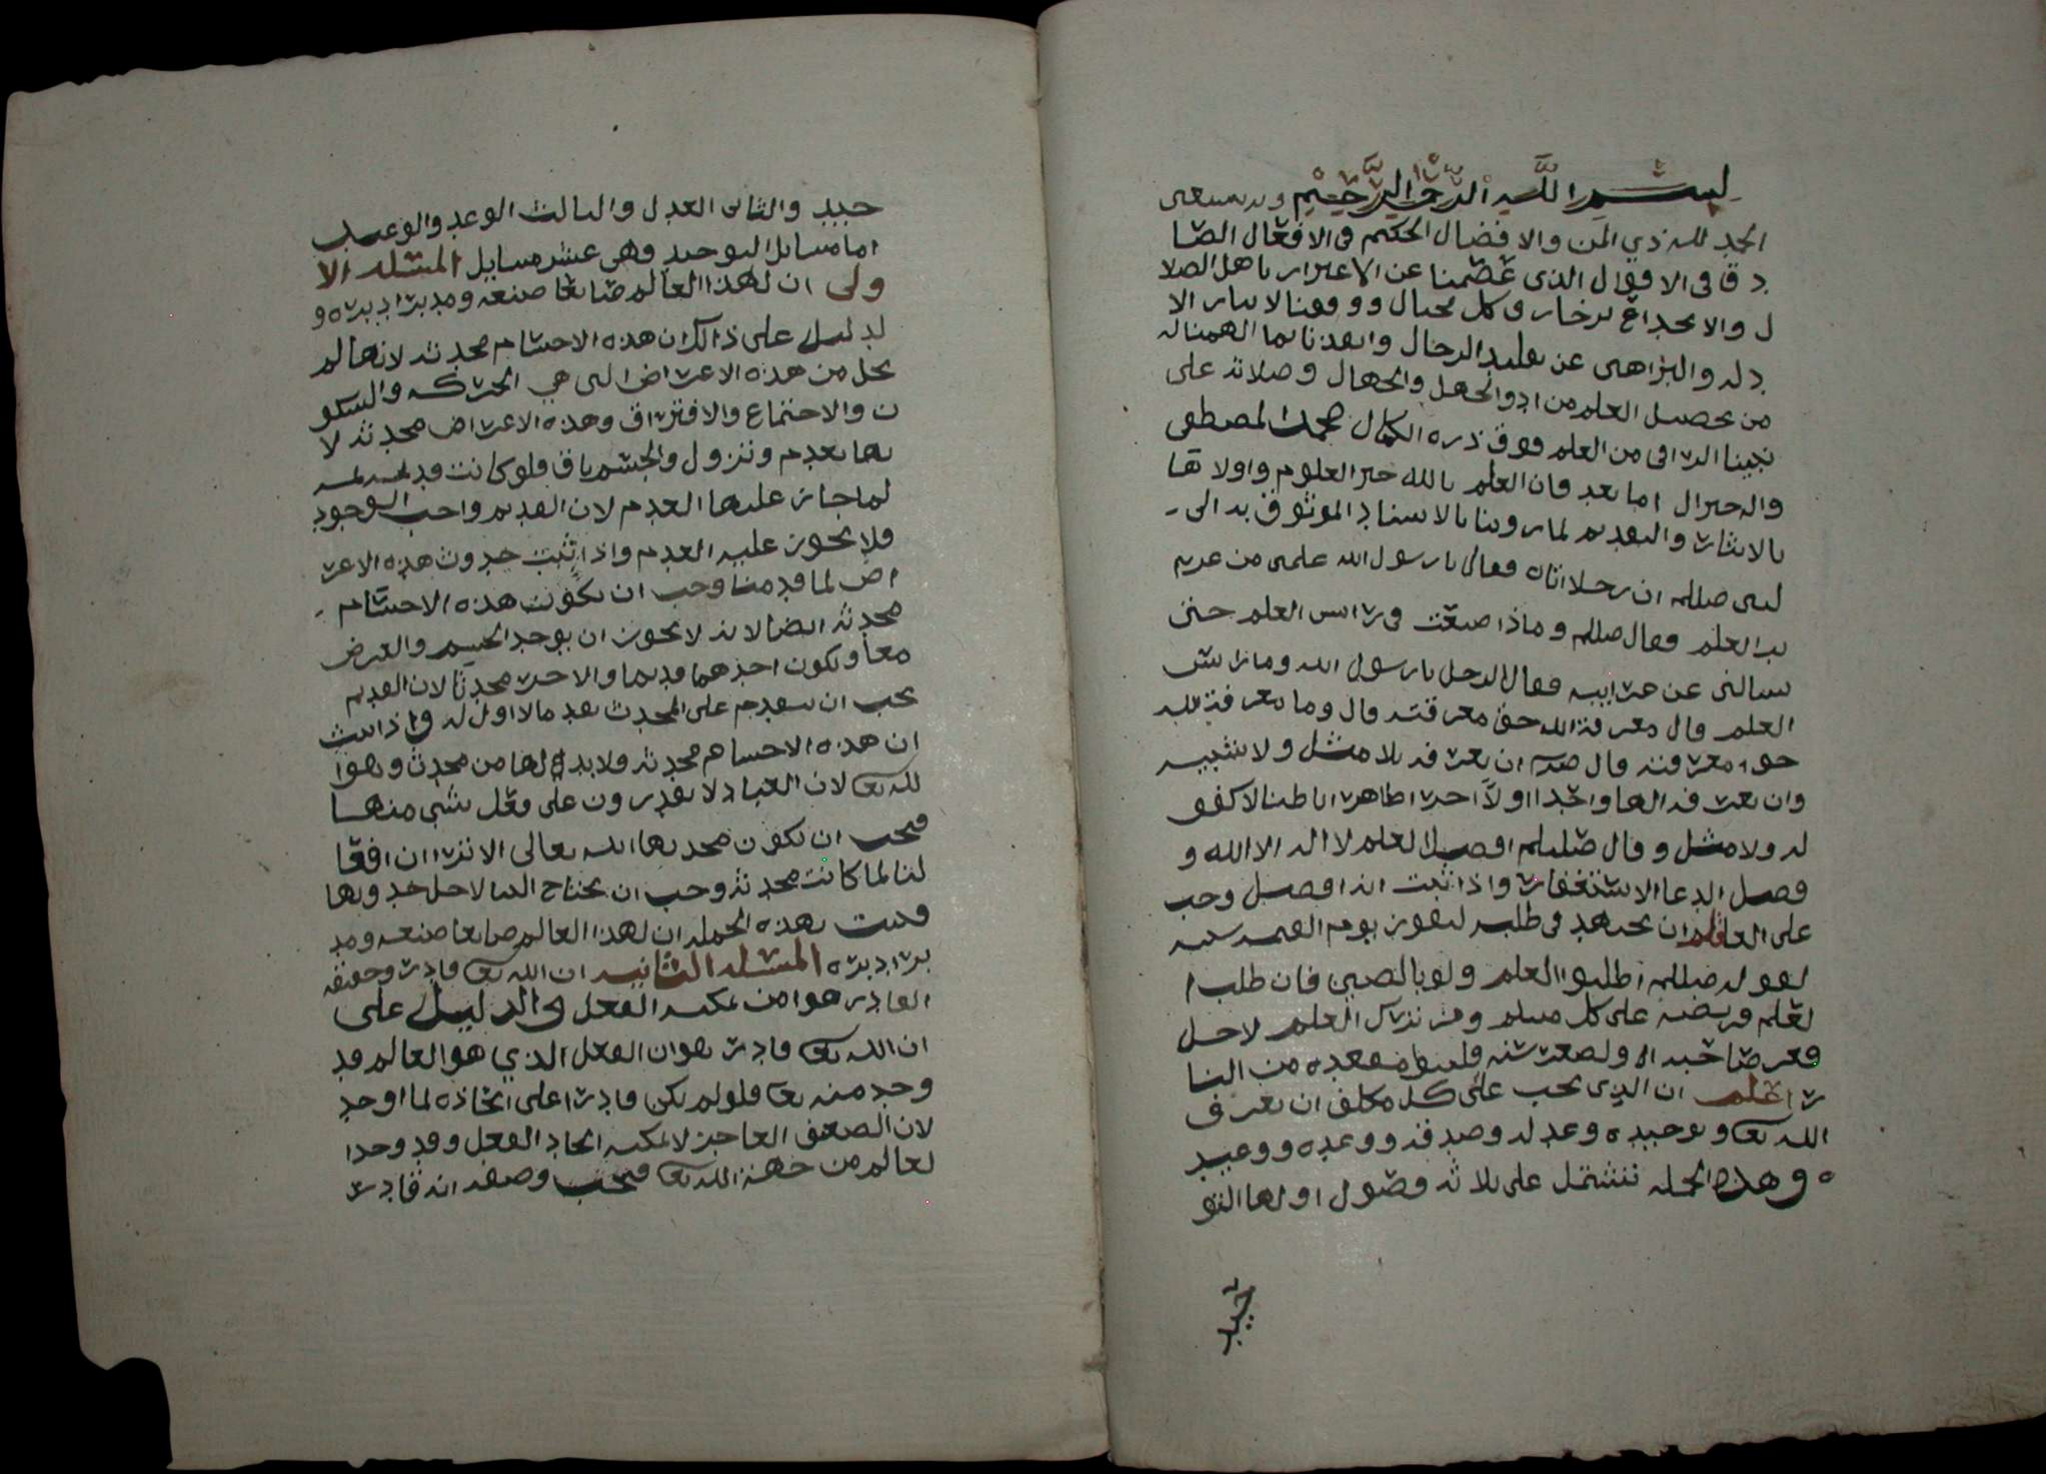 بسم الله الرحمن الرحيم وبه نستعين
الحمد لله ذي المن والافضال الحكيم في الافعال الصا
دق في الاقوال الذي عصمنا عن الاغترار باهل الضلا
ل والانخداع بزخارف كل محتال ووفقنا لايثار الا
دله والبراهين عن تقليد الرجال وانقذنا بما الهمنا له
من تحصيل العلم من ادوا الجهل والجهال وصلاته على
نبينا الراقي من العلم فوق ذره الكمال محمد المصطفى
واله خير ال اما بعد فان العلم بالله خير العلوم واولاها
بالايثار والتقديم لما روينا بالاسناد الموثوق به الى
لنبي صللم ان رجلا اتاه فقال يارسول الله علمني من غريب
العلم فقال صللم وماذا صنعت في راس العلم حتى
تسالني عن غرايبه فقال الرجل يارسول الله وما راس
العلم قال معرفة الله حق معرفته قال وما معرفة الله
حق معرفته قال ان تعرفه بلا مثل ولا شبيه
وان تعرفه الها واحدا اولا اخرا ظاهرا باطنا لا كفو
له ولا مثل وقال صللم افضل العلم لا اله الا الله و
فضل الدعا الاستغفار واذا ثبت انه افضل وجب
على العاقل ان يجتهد في طلبه ليفوز يوم القيمه
لقوله صللم اطلبوا العلم ولو بالصين فان طلب ا
لعلم فريضه على كل مسلم ومن ترك العلم لاجل
فقر صاحبه او لصغر سنه فليتبوا مقعده من النا
ر اعلم ان الذي يجب على كل مكلف ان يعرف
الله تعا وتوحيده وعدله وصدقه ووعده ووعيد
ه وهذه الجمله تشتمل على ثلاثه فصول اولها التو
حيد
حيد والثاني العدل والثالث الوعد والوعيد
اما مسايل التوحيد وهي عشر مسايل المسئله الا
ولى ان لهذا العالم صانعا صنعه ومدبرا دبره و
لدليل على ذالك ان هذه الاجسام محدثه لانها لم
تخل من هذه الاعراض التي هي الحركه والسكو
ن والاجتماع والافتراق وهذه الاعراض محدثه لا
نها تعدم وتزول والجسم باق فلو كانت قديمه
لما جاز عليها العدم لان القديم واجب الوجود
فلا يجوز عليه العدم واذا ثبت حدوث هذه الاعر
اض لما قدمنا وجب ان تكون هذه الاجسام
محدثه ايضا لانه لا يجوز ان يوجد الجسم والعرض
معا ويكون احدهما قديما والاخر محدثا لان القديم
يجب ان يتقدم على المحدث تقدما لا اول له واذا ثبت
ان هذه الاجسام محدثه ولابد لها من محدث وهو ا
لله تعا لان العباد لا يقدرون على فعل شي منها
فيجب ان يكون محدثها الله تعالى الا ترا ان افعا
لنا لما كانت محدثه وجب ان تحتاج الينا لاجل حدوثها
فثبت بهذه الجمله ان لهذا العالم صانعا صنعه ومد
برا دبره المسئله الثانيه ان الله تعا قادر وحقيقه
القادر هو من يمكنه الفعل والدليل على
ان الله تعا قادر هو ان الفعل الذي هو العالم قد
وجد منه تعا فلو لم يكن قادرا على اتخاذه لما اوجد
لان الضعيف العاجز لا يمكنه ايجاد الفعل وقد وجد ا
لعالم من جهة الله تعا فيجب وصفه انه قادر